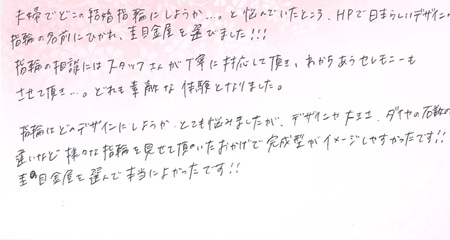 夫婦でどこの結婚指輪にしようか…。と悩んでいたところ、HPで目まぐるしいデザインや
指輪の名前にひかれ、杢目金屋を選びました!!!
指輪の相談にはスタッフさんが丁寧に対応して頂き、わかちあうセレモニーも
させて頂き…。とても素敵な体験となりました。
指輪はどのデザインにしようか、とても悩みましたが、デザインや大きさ、ダイヤの石数の
違いなど様々な指輪を見せて頂いたおかげで完成型がイメージしやすかったです!!
杢目金屋を選んで本当によかったです!!